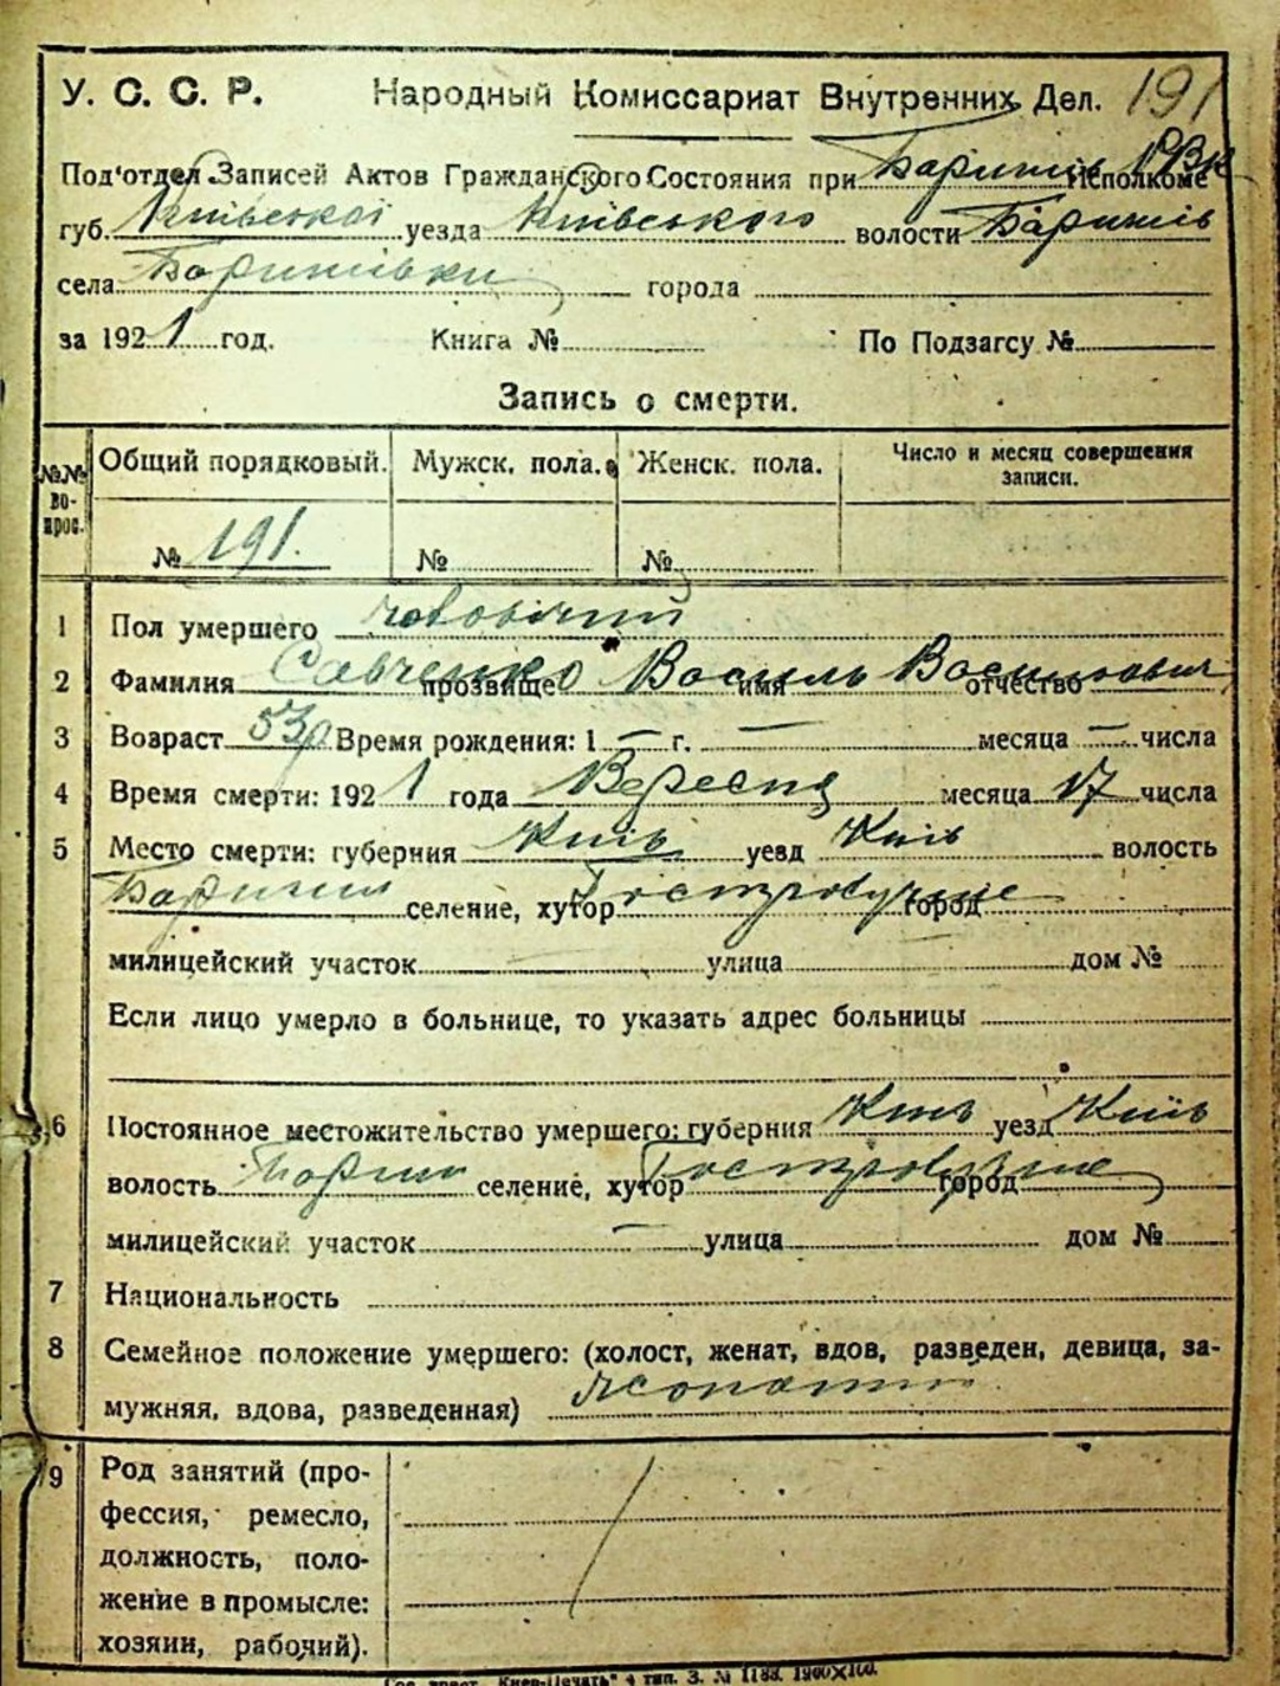 У. С. С. Р. Народный Комиссариат Внутренних Дел. 191
Под'отдел Записей Актов Гражданского Состояния при Баришів РВК Исполкоме
губ. Київської уезда Київського волости Баришів
села Баришівки города
за 1921 год. Книга № По Подзагсу №
Запись о смерти.
№№ вопрос. Общий порядковый. Мужск. пола. Женск. пола. Число и месяц совершения записи.
№ 191. № №
1 Пол умершего чоловічий
2 Фамилия Савченко прозвище Василь имя Васильович отчество
3 Возраст 53р Время рождения: 1 — г. — месяца — числа
4 Время смерти: 1921 года Вересня месяца 17 числа
5 Место смерти: губерния Київ уезд Київ волость
Баришів селение, хутор Гостролуччє город
милицейский участок улица дом №
Если лицо умерло в больнице, то указать адрес больницы
6 Постоянное местожительство умершего: губерния Київ уезд Київ
волость Бориш селение, хутор Гостролуччє город
милицейский участок — улица дом №
7 Национальность
8 Семейное положение умершего: (холост, женат, вдов, разведен, девица, за-
мужняя, вдова, разведенная) жонатий
9 Род занятий (про-
фессия, ремесло,
должность, поло-
жение в промысле:
хозяин, рабочий).
Гос. трест „Киев-Печать" 4 тип. З. № 1188. 1900×100.